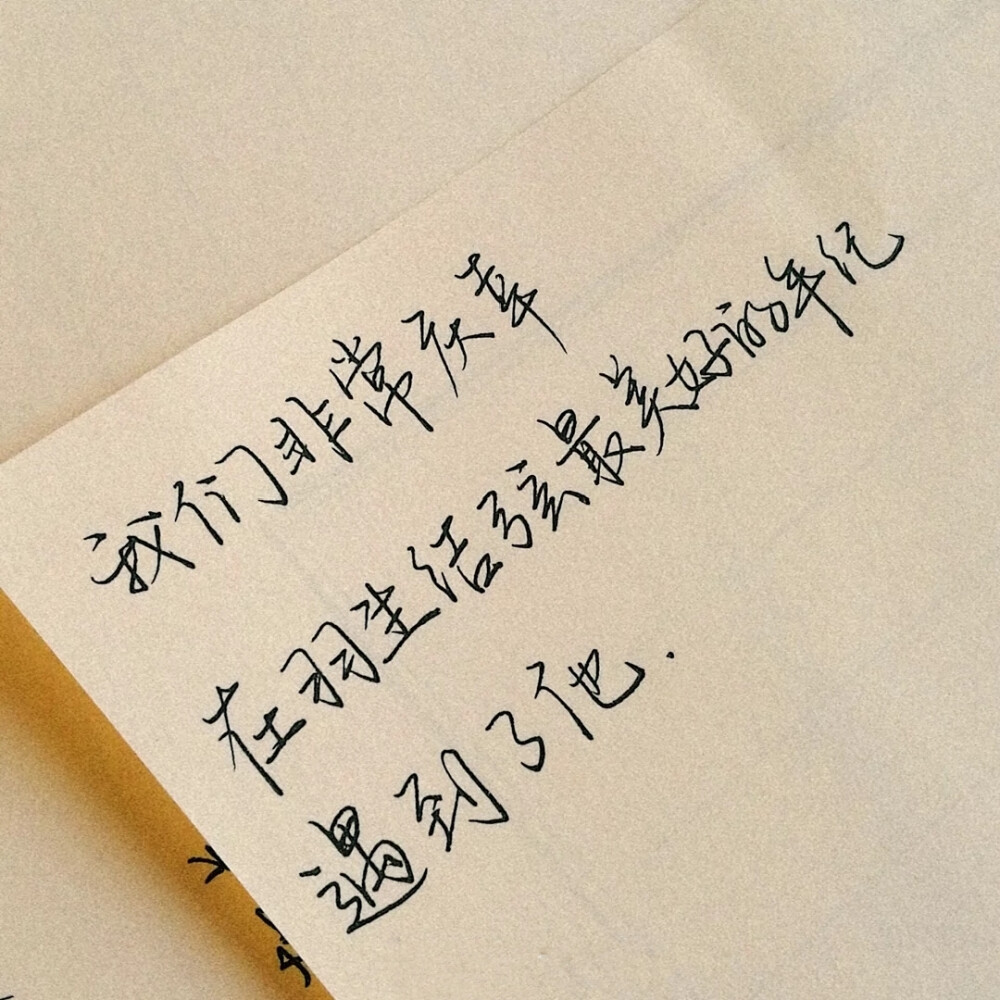 我们非常庆幸
在羽生结弦最美好的年纪
遇到了他.